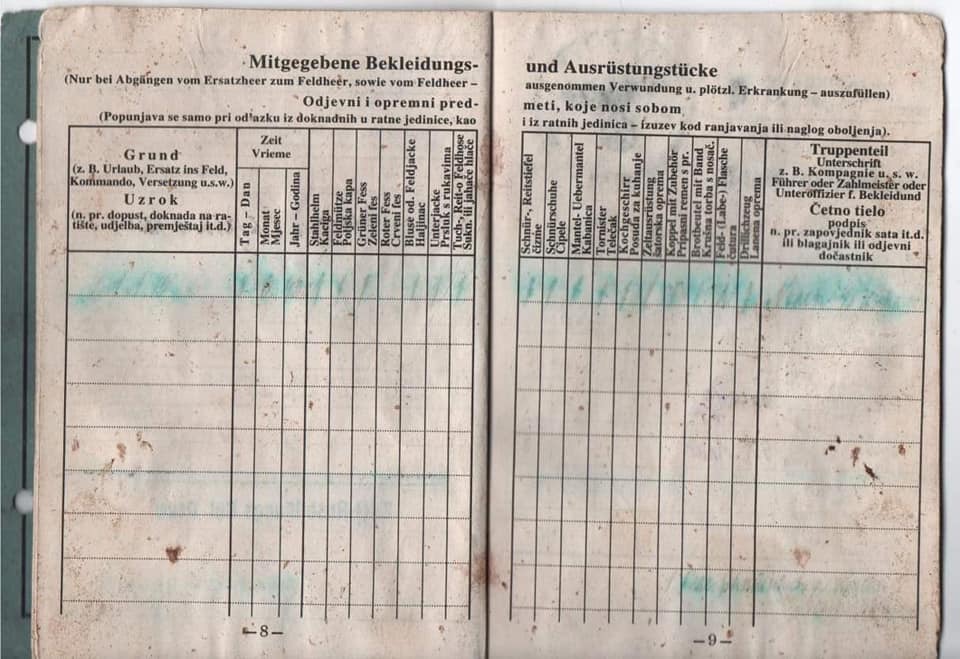 Mitgegebene Bekleidungs-
(Nur bei Abgängen vom Ersatzheer zum Feldheer, sowie vom Feldheer –
Odjevni i opremni pred-
(Popunjava se samo pri odlazku iz doknadnih u ratne jedinice, kao
Grund
(z. B. Urlaub, Ersatz ins Feld,
Kommando, Versetzung u.s.w.)
Uzrok
(n. pr. dopust, doknada na ra-
tište, udjelba, premještaj it.d.)
Zeit
Vrieme
Tag – Dan
Monat
Mjesec
Jahr – Godina
Stahlhelm
Kaciga
Feldmütze
Poljska kapa
Grüner Fess
Zeleni fes
Roter Fess
Crveni fes
Bluse od. Feldjacke
Haljinac
Unterjacke
Prsluk s rukavima
Tuch-, Reit-o Feldhose
Sukn. ili jahaće hlače
– 8 –
und Ausrüstungstücke
ausgenommen Verwundung u. plötzl. Erkrankung – auszufüllen)
meti, koje nosi sobom
i iz ratnih jedinica – izuzev kod ranjavanja ili naglog oboljenja).
Schnür-, Reitstiefel
čizme
Schnürschuhe
Cipele
Mantel- Uebermantel
Kabanica
Tornister
Telećak
Kochgeschirr
Posuda za kuhanje
Zeltausrüstung
šatorska oprema
Koppel mit Zubehör
Pripasni remen s pr.
Brotbeutel mit Band
Krušna torba s nosač.
Feld- (Labe-) Flasche
čutura
Drillichzeug
Lanena oprema
Truppenteil
Unterschrift
z. B. Kompagnie u. s. w.
Führer oder Zahlmeister oder
Unteroffizier f. Bekleidund
Četno tielo
podpis
n. pr. zapovjednik sata it.d.
ili blagajnik ili odjevni
dočastnik
– 9 –